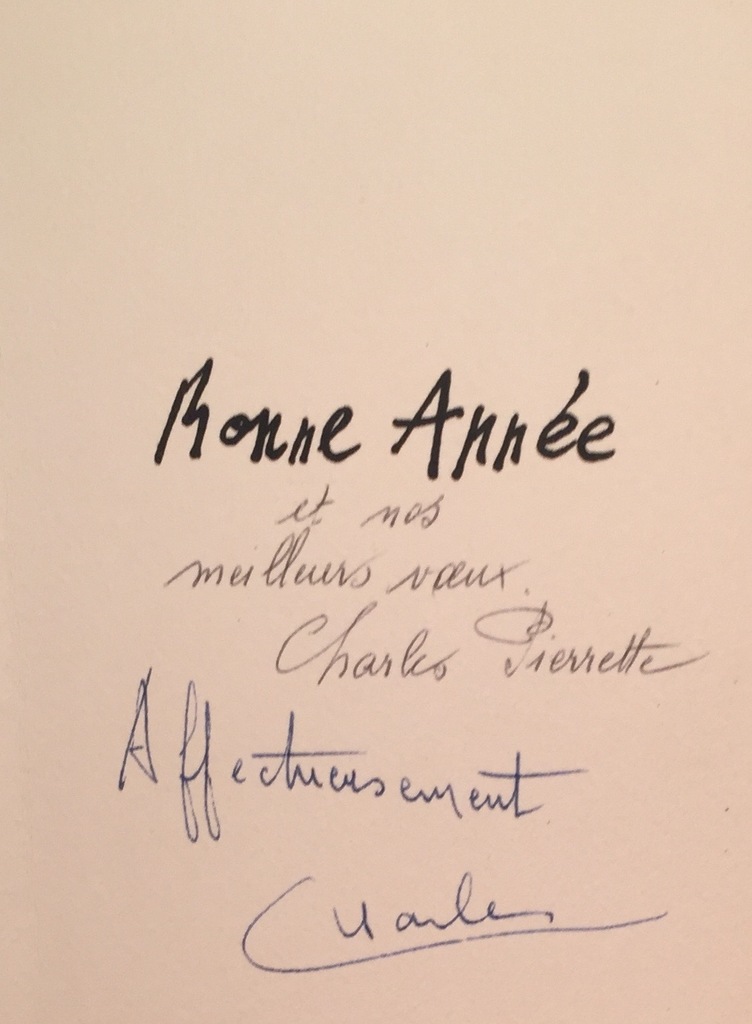 Bonne Année
et nos
meilleurs vœux.
Charles Pierrette
Affectueusement
Charles